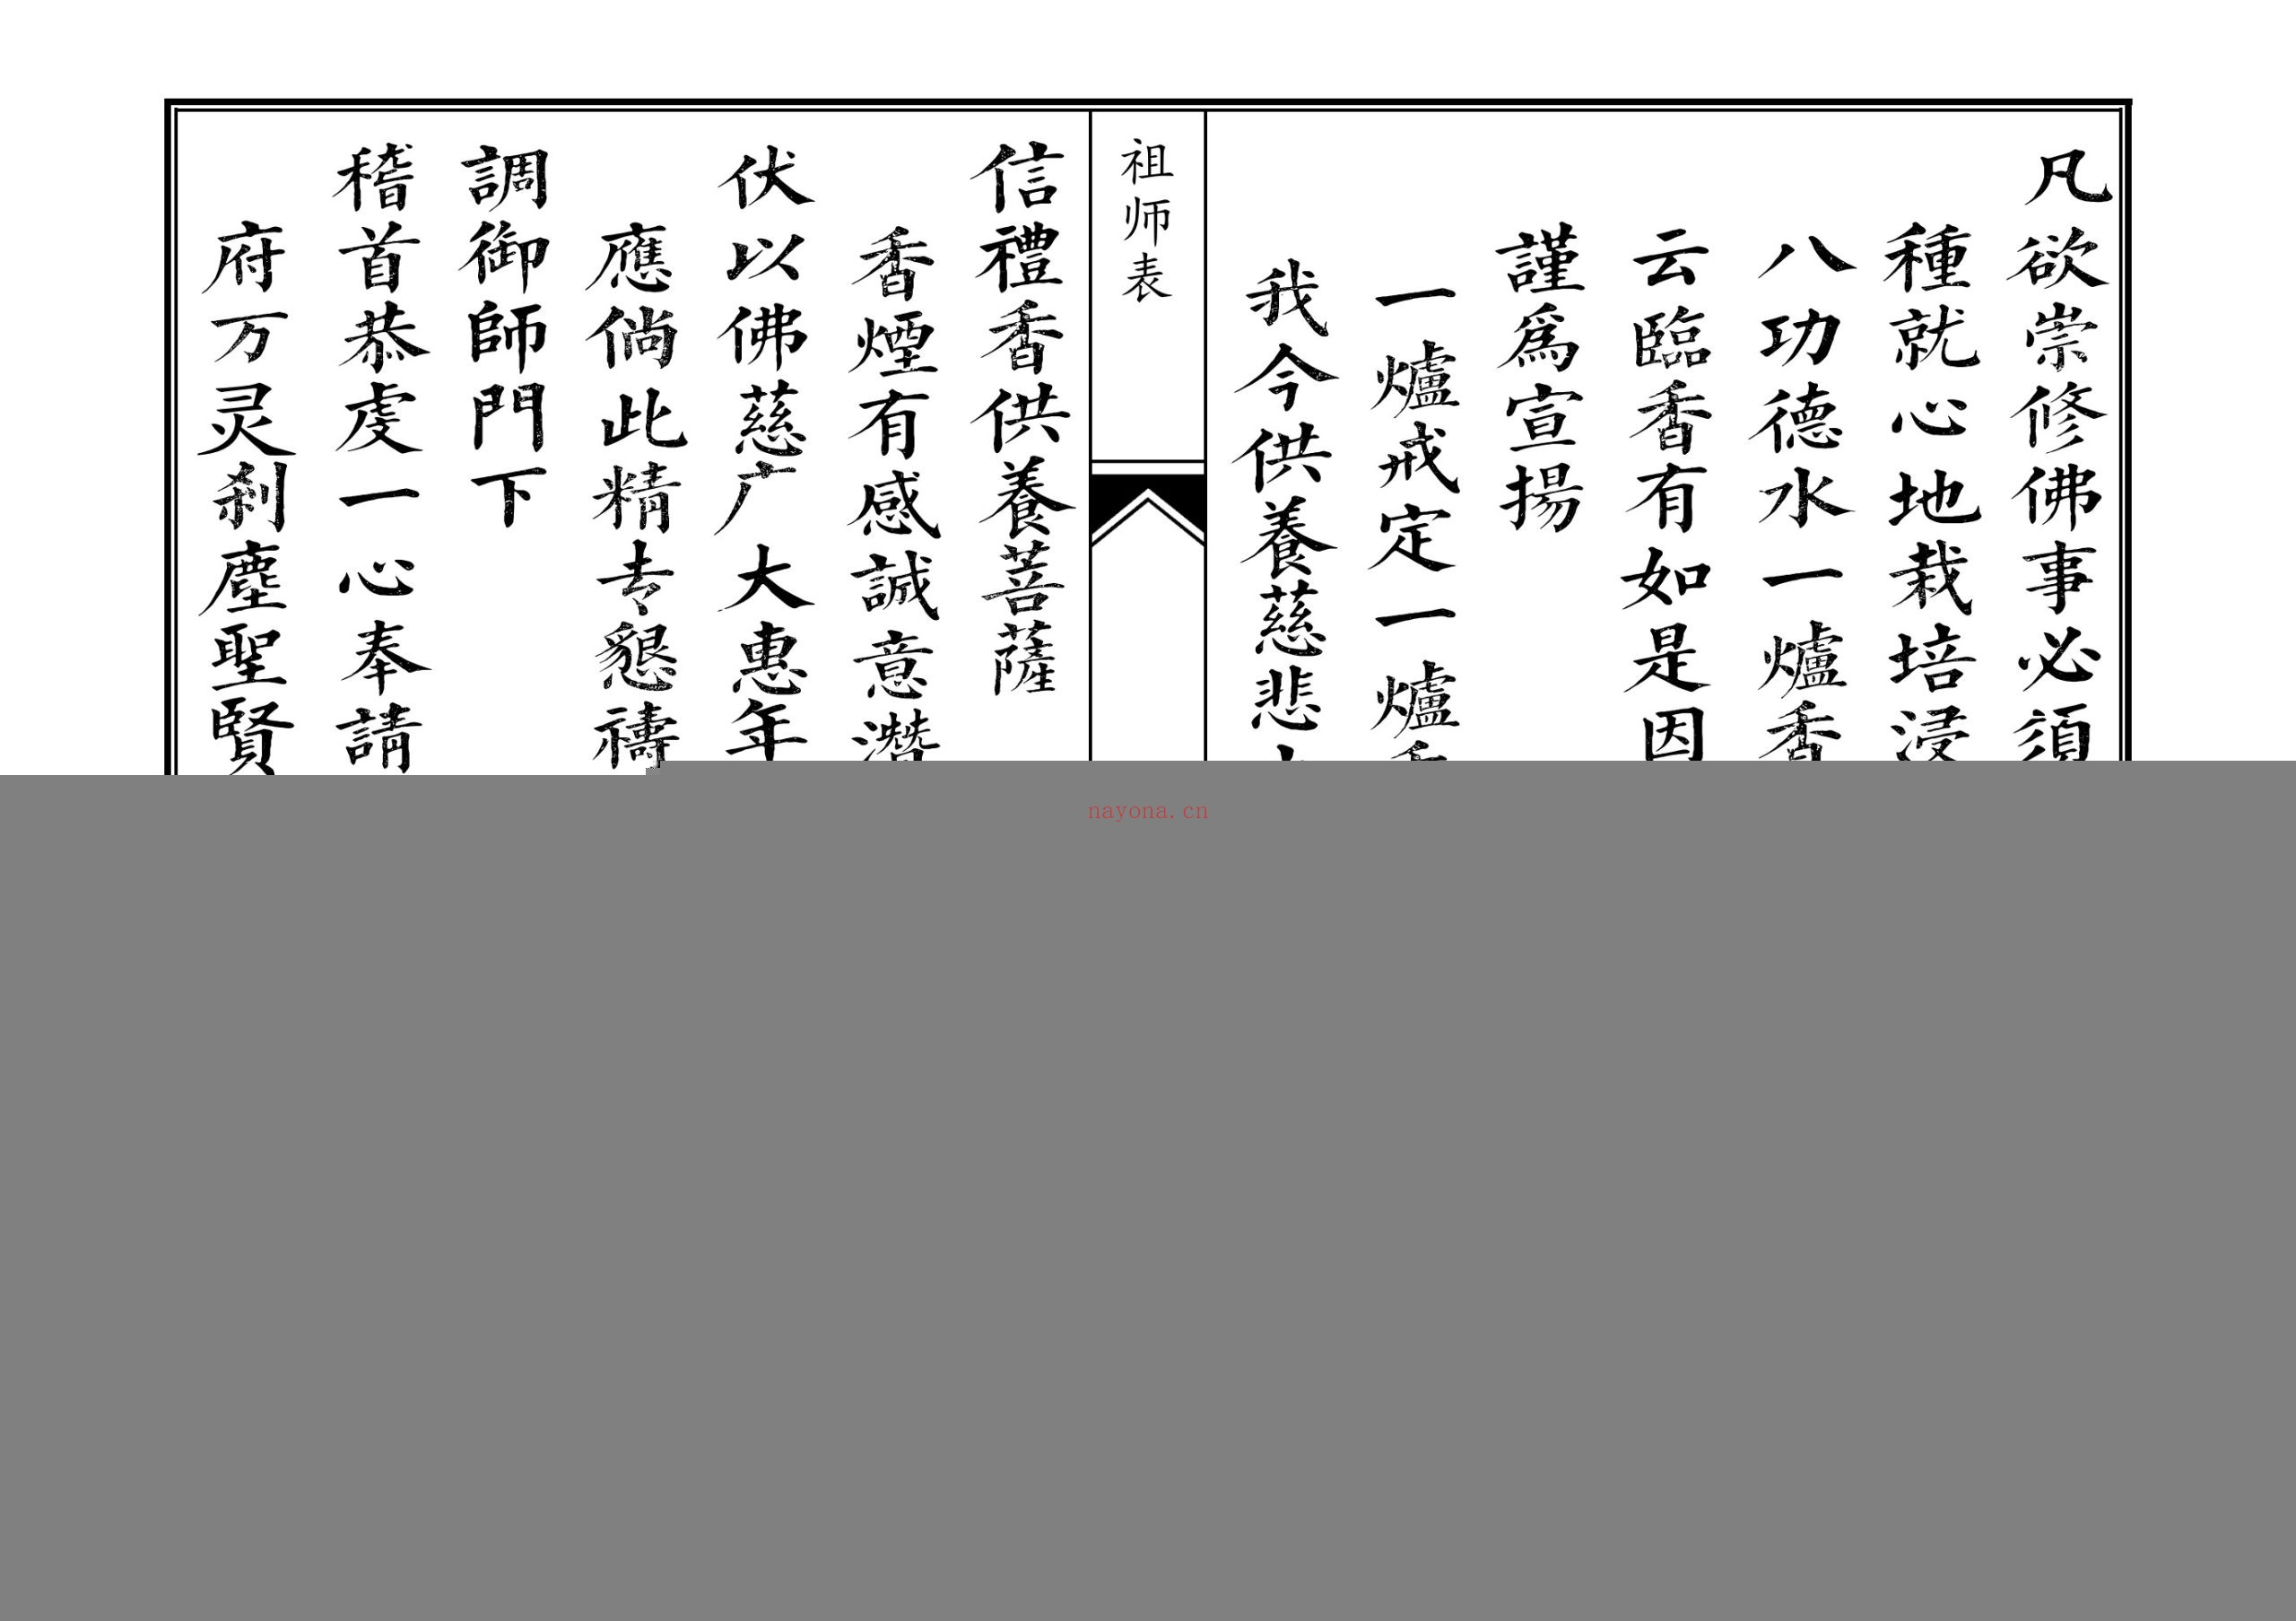 凡欲崇修佛事必須
種就心地栽培浸
八功德水一爐香
云臨香有如是因
謹爲宣揚
一爐戒定一爐
我今供養慈悲
祖师表
信禮香供養菩薩
香煙有感誠意潛
伏以佛慈广大惠年
應倘此精专懇禱
調御師門下
稽首恭虔一心奉請
府万灵刹塵聖賢
nayona.cn